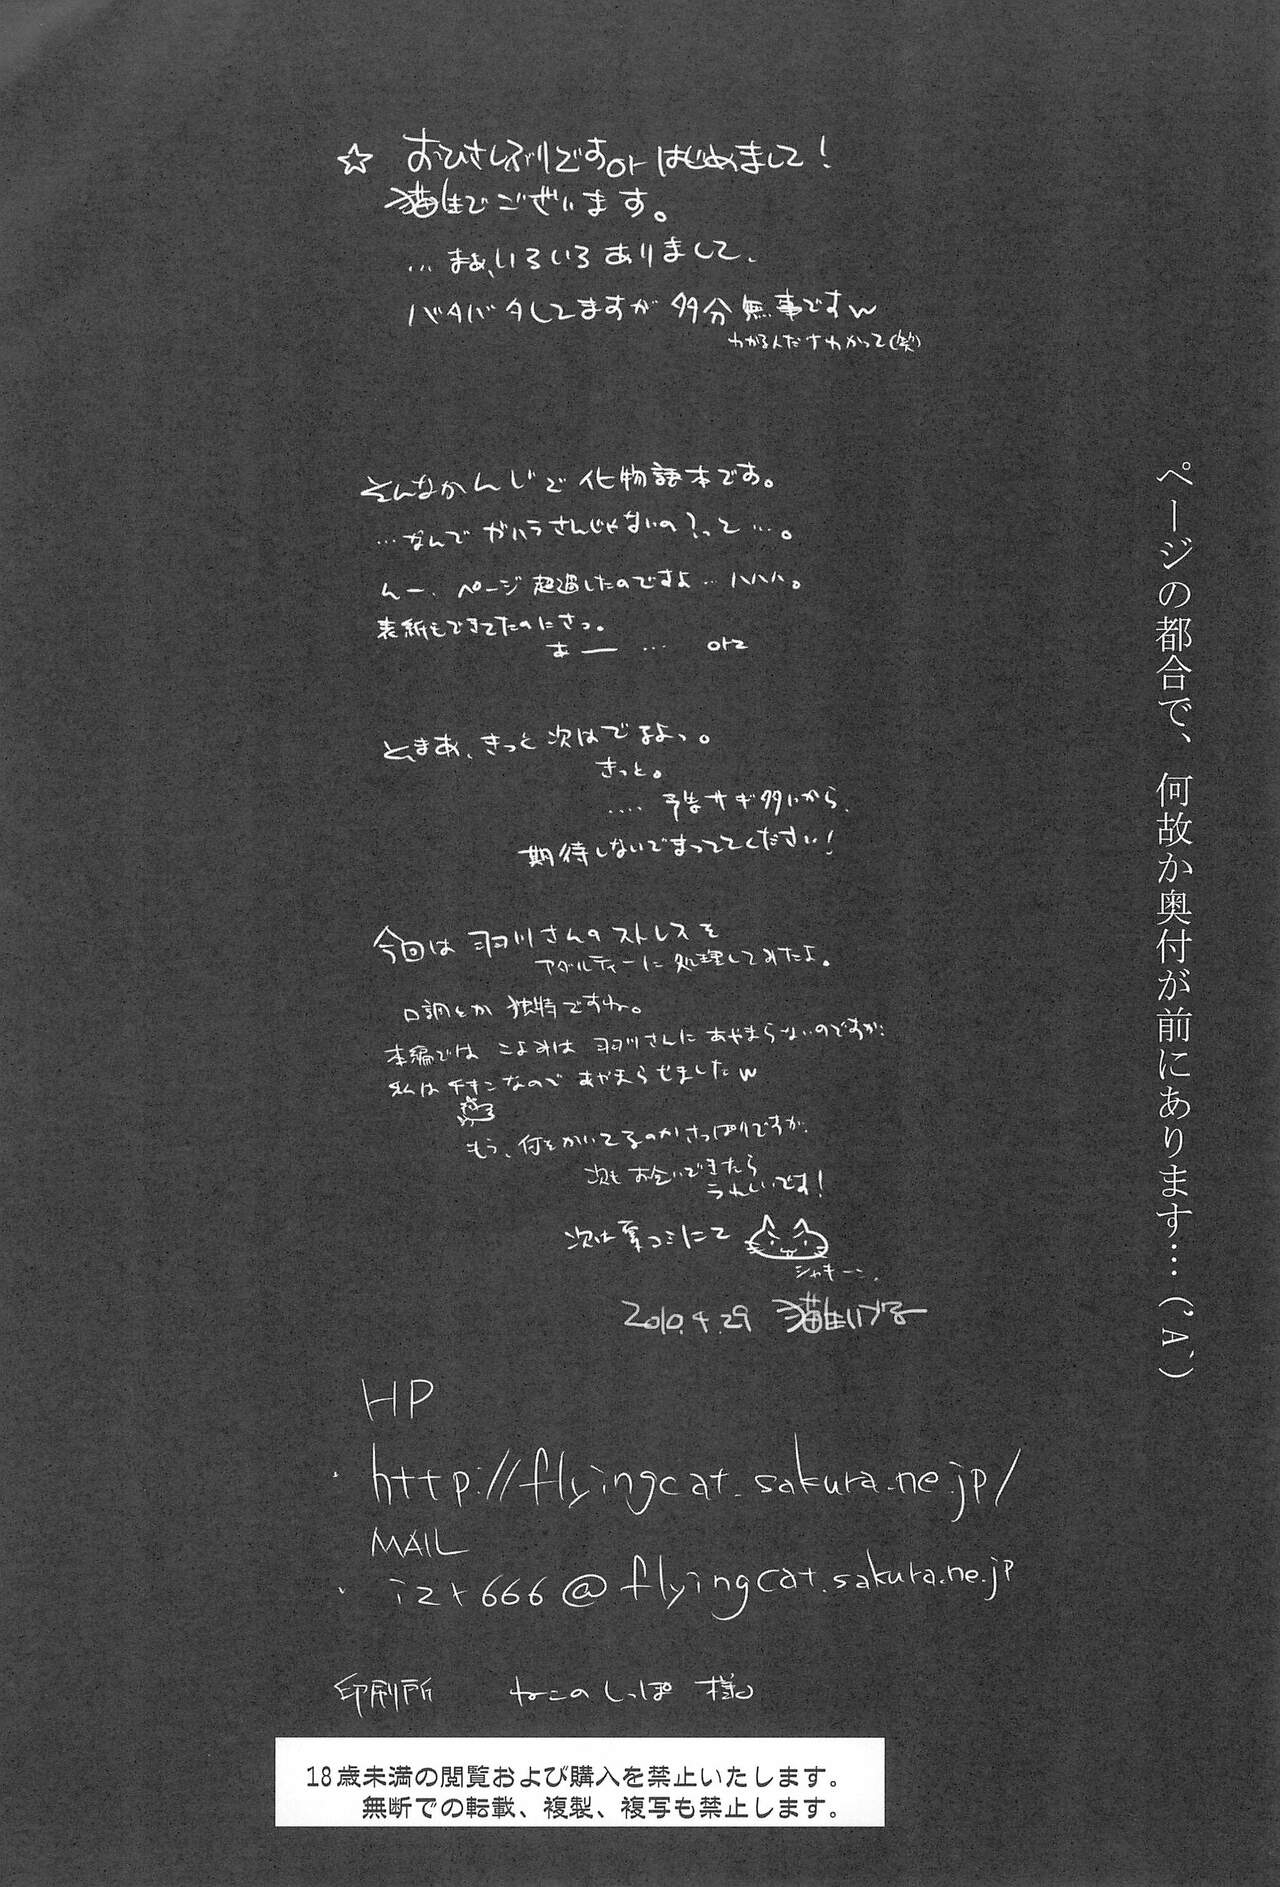 ページの都合で、何故か奥付が前にあります…('A`)
☆ おひさしぶりですorはじめまして!
猫生でございます。
…まぁ、いろいろありまして、
バタバタしてますが多分無事ですw
わかるんだすわかって(笑)
そんなかんじで化物語本です。
…なんでガハラさんじゃないの?って…。
んー、ページ超過したのですよ…ハハハ。
表紙もできてたのにさっ。
あー … orz
とまあ、きっと次はでるよっ。
きっと。
…. 予告サギ多いから、
期待しないでまっててください!
今回は羽川さんのストレスを
アダルティーに処理してみたよ。
口調とか独特ですね。
本編では こよみは 羽川さんに あやまらないのですが、
私はチキンなので あやまらせましたw
もう、何をかいてるのかさっぱりですが、
次もお会いできたら
うれしいです!
次は夏コミにて
シャキーン。
2010.4.29 猫生いづる
HP
・http://flyingcat.sakura.ne.jp/
MAIL
・izr666@flyingcat.sakura.ne.jp
印刷所 ねこのしっぽ 様
18歳未満の閲覧および購入を禁止いたします。
無断での転載、複製、複写も禁止します。